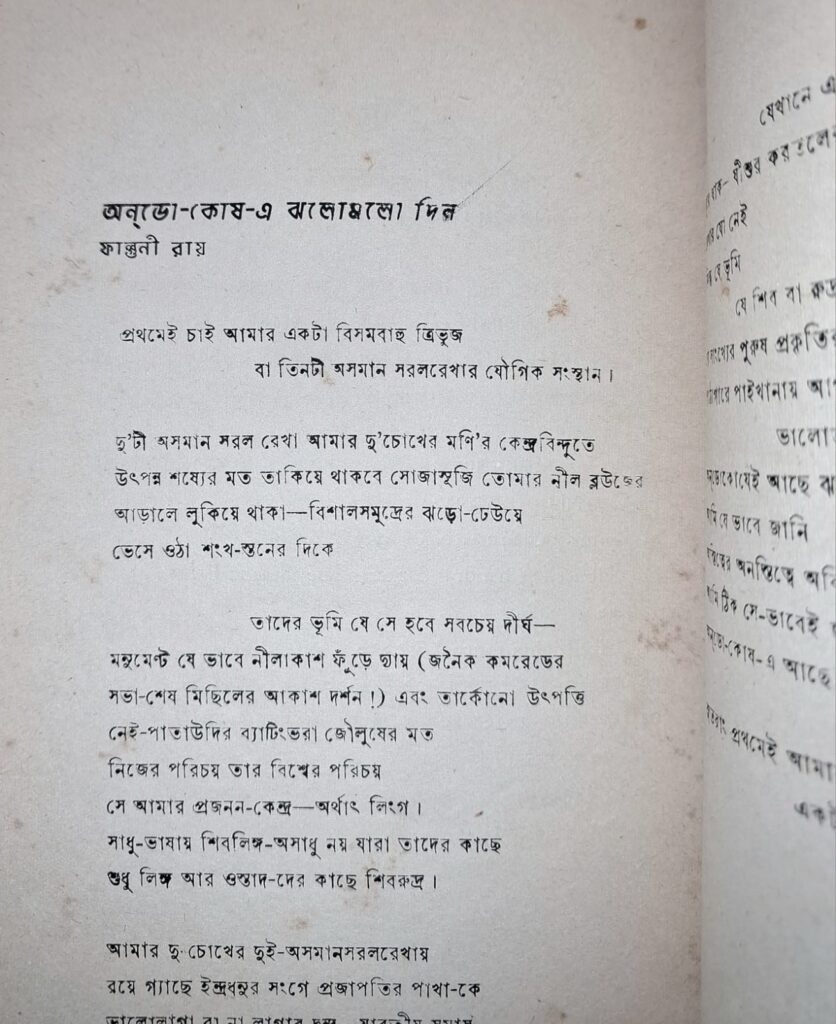 অন্ডো-কোষ-এ ঝলোমলো দিন
ফাল্গুনী রায়
প্রথমেই চাই আমার একটা বিসমবাহু ত্রিভুজ
বা তিনটী অসমান সরলরেখার যৌগিক সংস্থান।
দু'টী অসমান সরল রেখা আমার দু'চোখের মণি'র কেন্দ্রবিন্দুতে
উৎপন্ন শষ্যের মত তাকিয়ে থাকবে সোজাসুজি তোমার নীল ব্লউজের
আড়ালে লুকিয়ে থাকা—বিশালসমুদ্রের ঝড়ো-ঢেউয়ে
ভেসে ওঠা শংখ-স্তনের দিকে
তাদের ভূমি যে সে হবে সবচেয় দীর্ঘ—
মনুমেন্ট যে ভাবে নীলাকাশ ফুঁড়ে যায় (জনৈক কমরেডের
সভা-শেষ মিছিলের আকাশ দর্শন!) এবং তার্কোনো উৎপত্তি
নেই-পাতাউদির ব্যাটিংভরা জৌলুষের মত
নিজের পরিচয় তার বিশ্বের পরিচয়
সে আমার প্রজনন-কেন্দ্র—অর্থাৎ লিংগ।
সাধু-ভাষায় শিবলিঙ্গ-অসাধু নয় যারা তাদের কাছে
শুধু লিঙ্গ আর ওস্তাদ-দের কাছে শিবরুদ্র।
আমার দু-চোখের দুই-অসমানসরলরেখায়
রয়ে গ্যাছে ইন্দ্রধনুর সংগে প্রজাপতির পাখা-কে
ভালোলাগা বা না লাগার
যেখানে এ
যীশুর করতলে
নেই
যে ভূমি
যে শিব বা রুদ্র
পুরুষ প্রকৃতির
পাইখানায়
ভালো
আছে ঝ
যে ভাবে জানি
অনস্তিত্বে
ঠিক সে-ভাবেই
কোষ-এ আছে
প্রথমেই আমা
একট